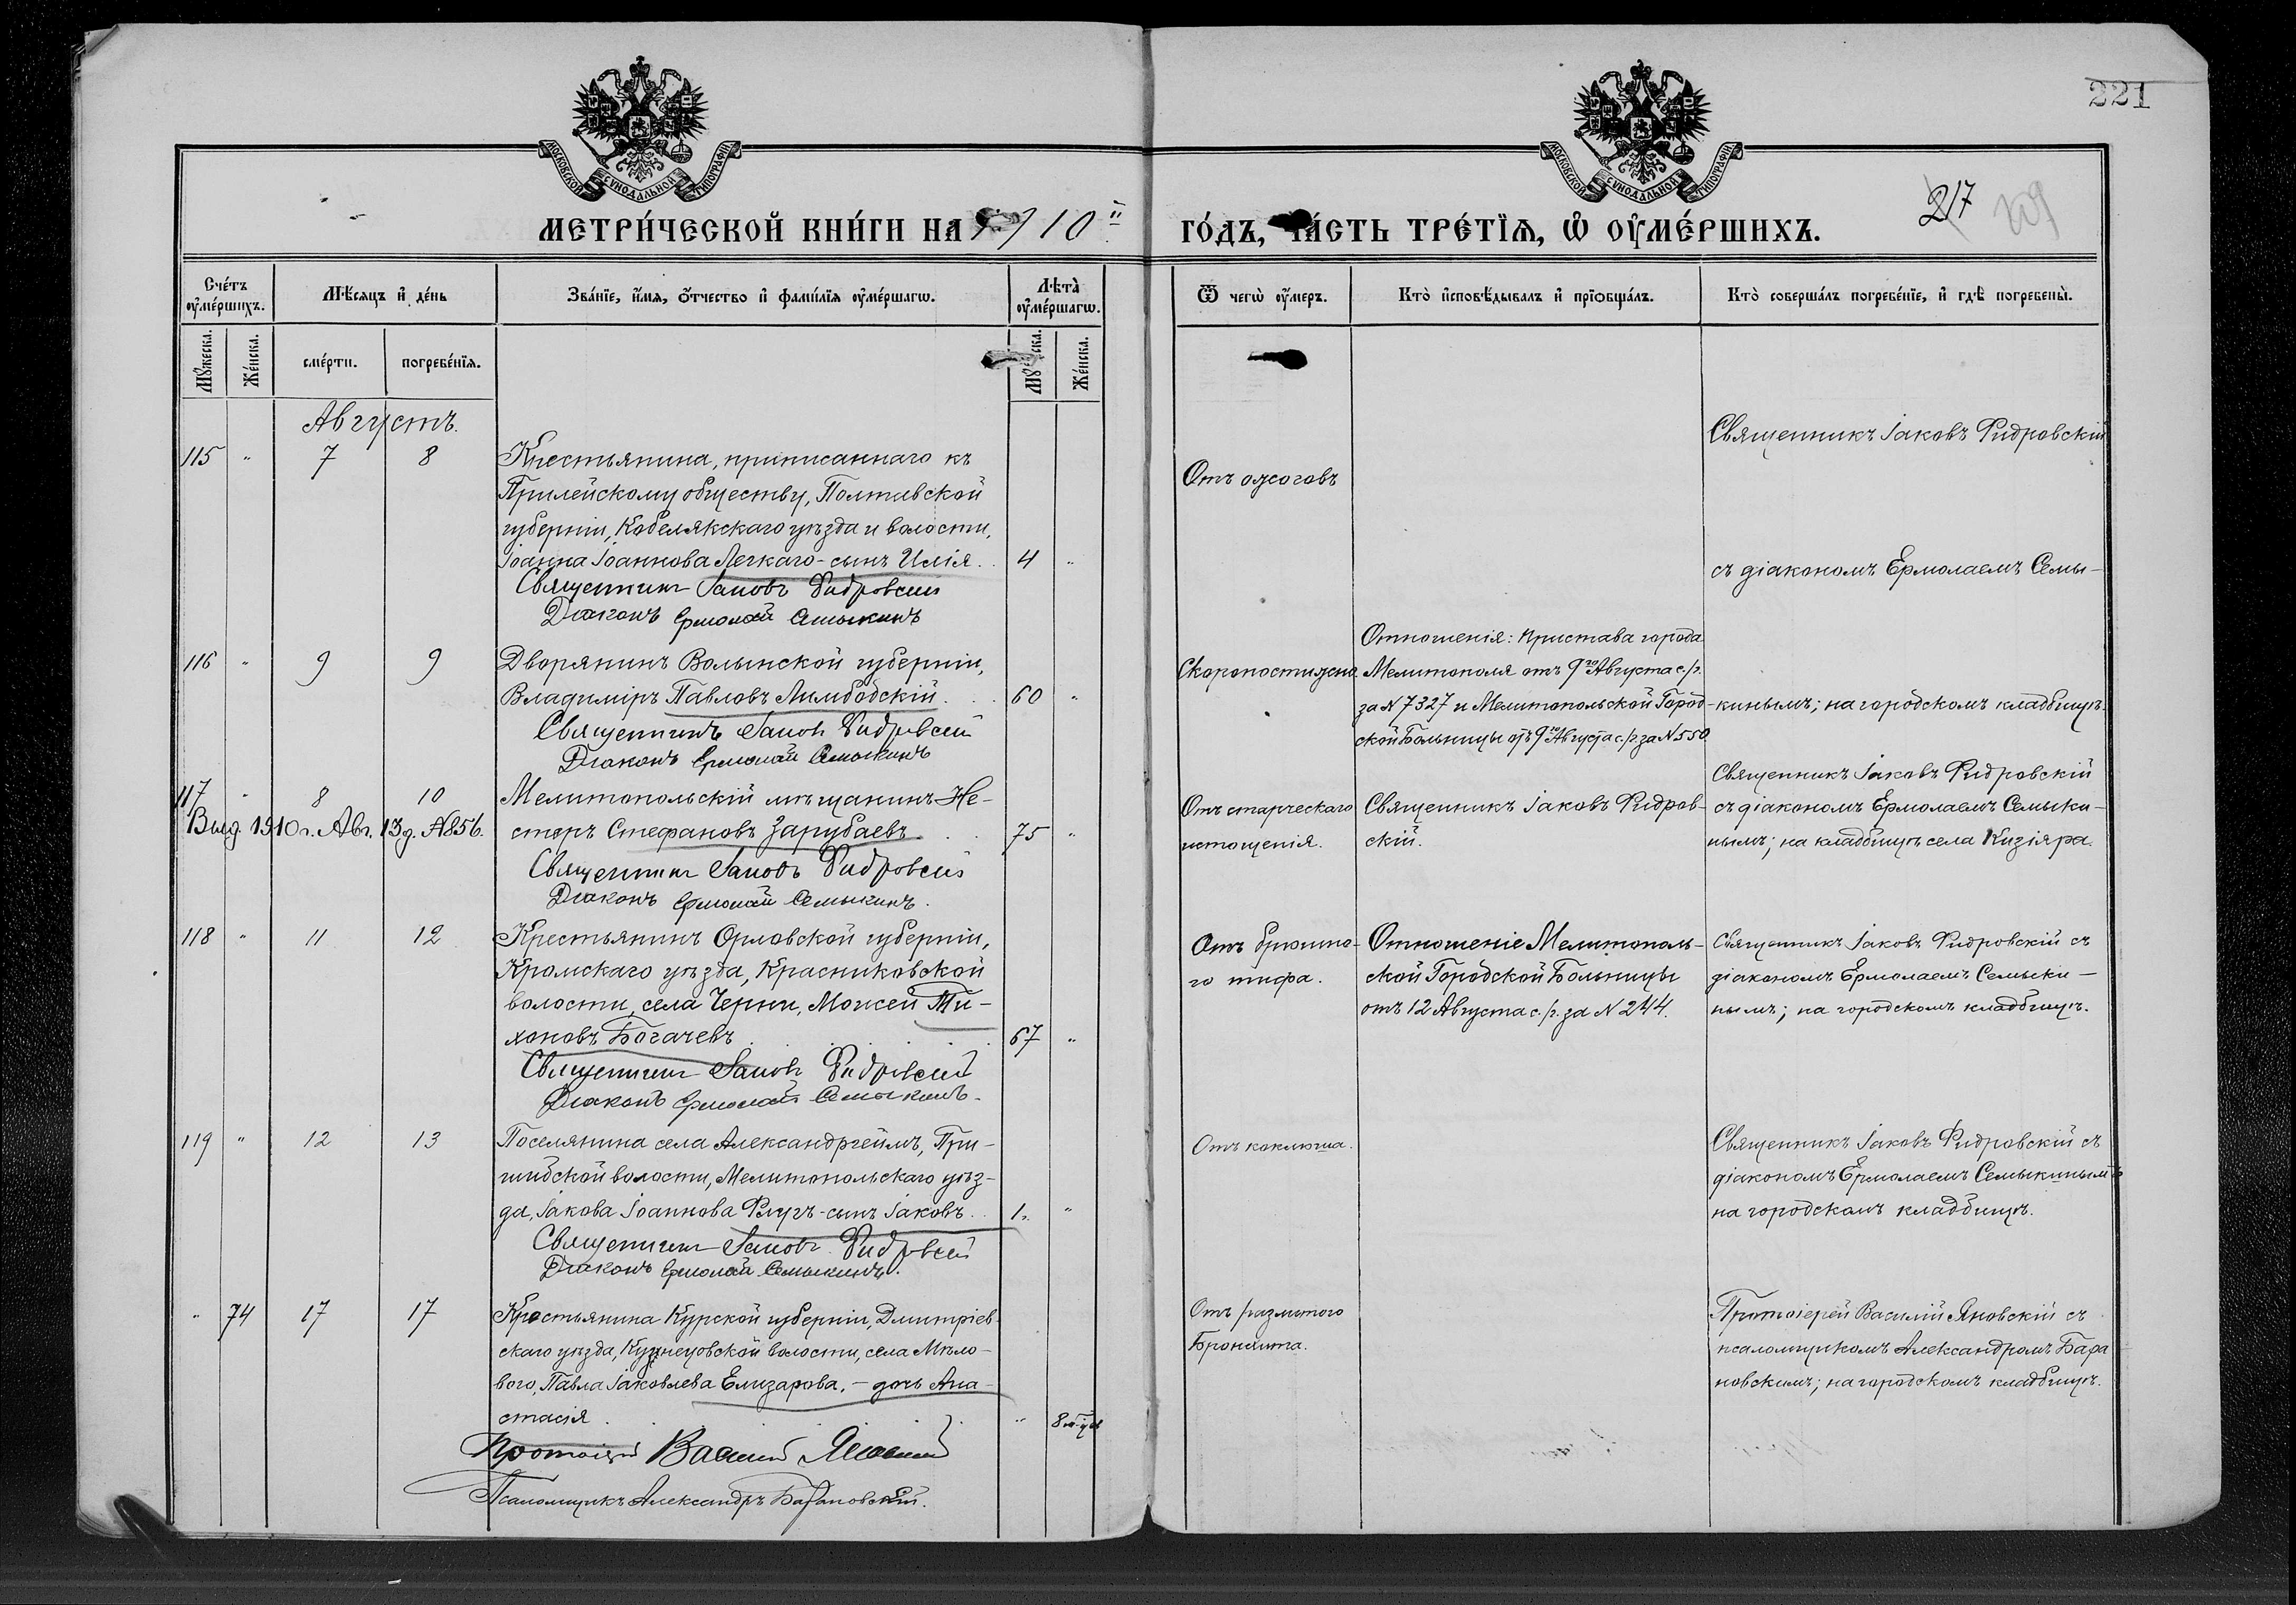 221
МОСКОВСКОЙ СѴНОДАЛЬНОЙ ТИПОГРАФІИ
МОСКОВСКОЙ СѴНОДАЛЬНОЙ ТИПОГРАФІИ
217
МЕТРИ́ЧЕСКОЙ КНИ́ГИ НА 1910й
ГО́ДЪ, ЧА́СТЬ ТРЕ́ТЇѦ, Ѡ҆ ОУ҆МЕ́РШИХЪ.
Сче́тъ оу҆ме́ршихъ.
Мѣ́сяцъ и҆ де́нь
Зва́нїе, и҆́мя, ѻ҆́тчество и҆ фами́лїя оу҆ме́ршагѡ.
Лѣта̀ оу҆ме́ршагѡ.
Ѿ чегѡ̀ оу҆́меръ.
Кто̀ и҆сповѣ́дывалъ и҆ прїѡбща́лъ.
Кто̀ соверша́лъ погребе́нїе, и҆ гдѣ̀ погребены̀.
Му́жеска.
Же́нска.
сме́рти.
погребе́нїя.
Же́нска.
Августъ.
115 " 7 8
Крестьянина, приписаннаго къ
Прилейскому обществу, Полтавской
губерніи, Кобелякскаго уѣзда и волости,
Іоанна Іоаннова Легкаго - сынъ Илія. . 4 "
Священникъ Іаковъ Фидровскій
Діаконъ Ермолай Семыкинъ
Отъ ожоговъ
Священникъ Іаковъ Фидровскій
съ діакономъ Ермолаемъ Семы-
кинымъ; на городскомъ кладбищѣ.
116 " 9 9
Дворянинъ Волынской губерніи,
Владиміръ Павловъ Лимбодскій. . . 60 "
Священникъ Іаковъ Фидровскій
Діаконъ Ермолай Семыкинъ
Скоропостижно
Отношенія: Пристава города
Мелитополя отъ 9го Августа с./г.
за № 7327 и Мелитопольской Город-
ской Больницы отъ 9го Августа с./г. за № 550
117 " 8 10
Выд. 1910 г. Авг. 13 д. № 856.
Мелитопольскій мѣщанинъ Не-
сторъ Стефановъ Зарубаевъ. . . 75 "
Священникъ Іаковъ Фидровскій
Діаконъ Ермолай Семыкинъ.
Отъ старческаго
истощенія.
Священникъ Іаковъ Фидров-
скій.
Священникъ Іаковъ Фидровскій
съ діакономъ Ермолаемъ Семыки-
нымъ; на кладбищѣ села Кизіяра.
118 " 11 12
Крестьянинъ Орловской губерніи,
Кромскаго уѣзда, Красниковской
волости, села Черни, Моисей Ти-
хоновъ Богачевъ . . . . 67 "
Священникъ Іаковъ Фидровскій
Діаконъ Ермолай Семыкинъ.
Отъ брюшно-
го тифа.
Отношеніе Мелитополь-
ской Городской Больницы
отъ 12 Августа с./г. за № 244.
Священникъ Іаковъ Фидровскій съ
діакономъ Ермолаемъ Семыки-
нымъ; на городскомъ кладбищѣ.
119 " 12 13
Поселянина села Александргеймъ, При-
шибской волости, Мелитопольскаго уѣз-
да, Іакова Іоаннова - сынъ Іаковъ. . 1г. "
Священникъ Іаковъ Фидровскій
Діаконъ Ермолай Семыкинъ.
Отъ коклюша.
Священникъ Іаковъ Фидровскій съ
діакономъ Ермолаемъ Семыкинымъ
на городскомъ кладбищѣ.
" 74 17 17
Крестьянина Курской губерніи, Дмитріев-
скаго уѣзда, Кузнецовской волости, села Мѣло-
вого, Павла Іаковлева Елизарова, - дочь Ана-
стасія . . . " 8 м-цев
Протоіерей Василій Яновскій
Псаломщикъ Александръ Барановскій.
Отъ разлитого
Бронхита.
Протоіерей Василій Яновскій съ
псаломщикомъ Александромъ Бара
новскимъ; на городскомъ кладбищѣ.